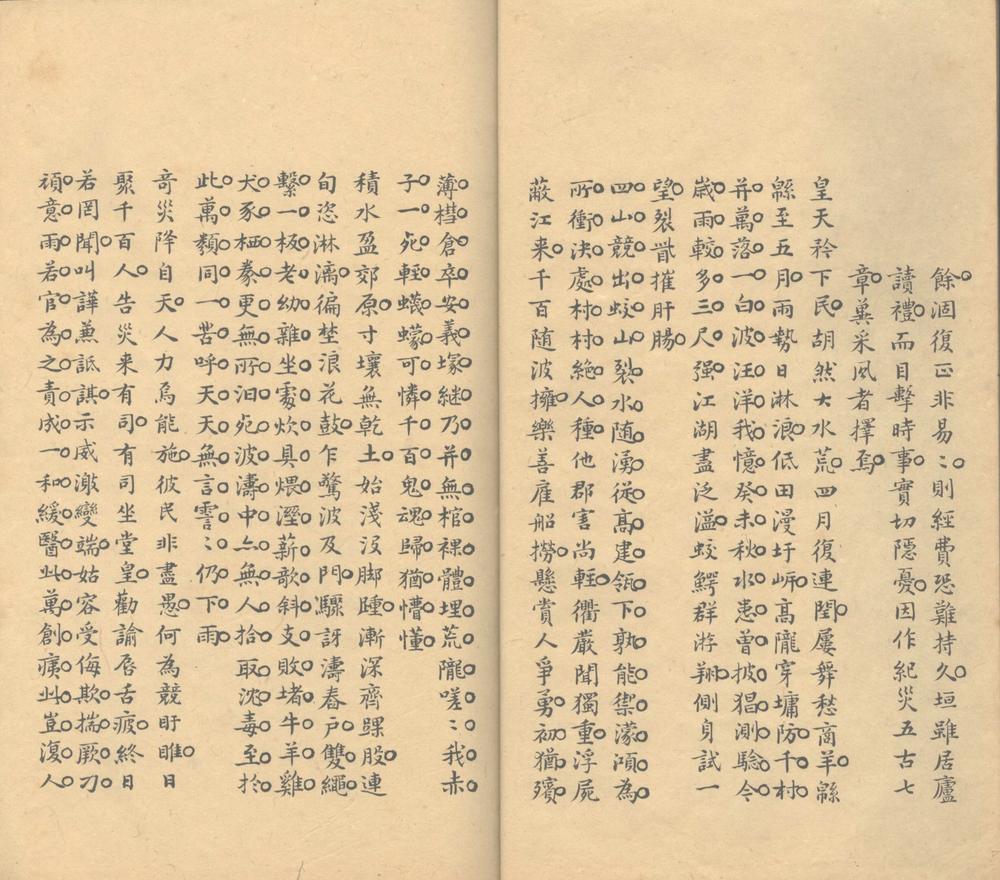 餘涸復正非易〻則經費恐難持久垣雖居廬
讀禮而目擊時事實切隱憂因作紀災五古七
章冀采風者擇焉
皇天矜下民胡然大水荒四月復連閏屢舞愁商羊緜
緜至五月雨勢日淋浪低田漫圩岸高隴穿墉防千村
并萬落一白波汪洋我憶癸未秋水患曾披猖測驗今
歲雨較多三尺强江湖盡泛溢蛟鰐群游翔側身試一
望裂眥摧肝腸
四山競出蛟山裂水随湧従高建瓴下孰能禦濛澒為
所衝決處村村絶人種他郡害尚輕衢嚴聞獨重浮屍
蔽江来千百随波擁樂善雇船撈懸賞人爭勇初猶殯
薄槥倉卒安義塚継乃并無棺裸體埋荒隴嗟〻我赤
子一死輕蠛蠓可憐千百鬼魂歸猶懵懂
積水盈郊原寸壤無乾土始淺沒脚踵漸深齊踝股連
旬恣淋漓徧埜浪花鼓乍驚波及門驟訝濤舂戶雙繩
繫一板老幼雜坐處炊具煨溼薪歌斜支敗堵牛羊雞
犬豕栖豢更無所汨死波濤中亦無人拾取沈毒至於
此萬類同一苦呼天天無言霅〻仍下雨
竒災降自天人力烏能施彼民非盡愚何為競盱睢日
聚千百人告災来有司有司坐堂皇勸諭唇舌疲終日
若罔聞叫譁兼詆諆示威激變端姑容受侮欺揣厥刀
頑意雨若官為之責成一和緩醫此萬創痍此豈復人